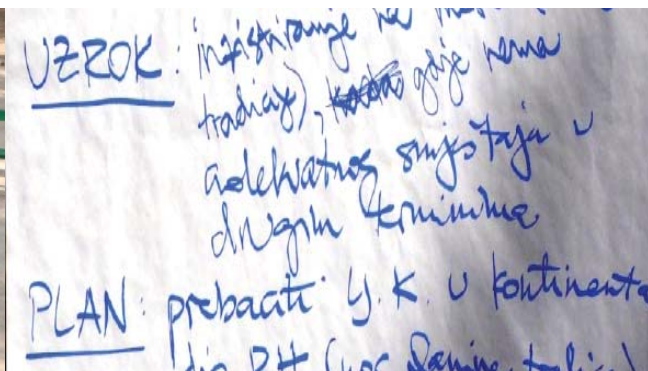 UZROK: inzistiranje na
tradiciji), gdje nema
adekvatnog smještaja u
drugim terminima
PLAN: prebaciti Y.K. u kontinenta
dio RH